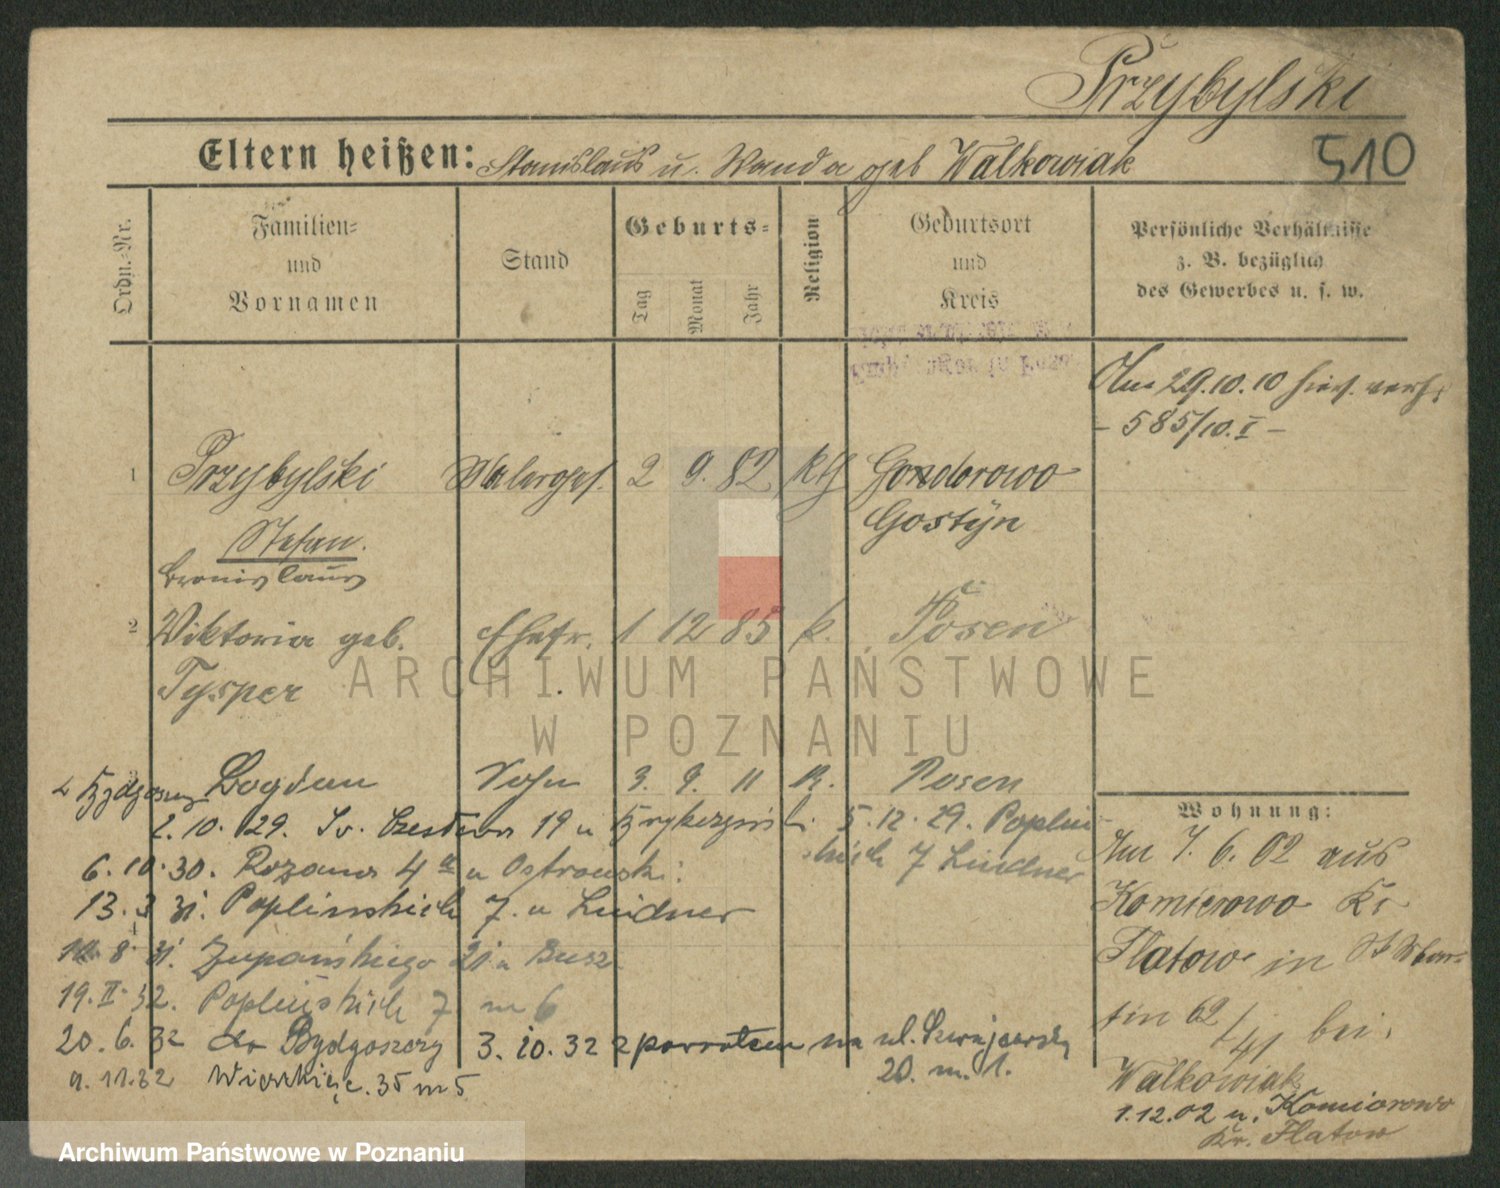 Przybylski
510
Eltern heißen: Stanislaus u. Wanda geb Walkowiak
Ordn.-Nr.
Familien- und Vornamen
Stand
Geburts-
Tag
Monat
Jahr
Religion
Geburtsort und Kreis
Persönliche Verhältnisse
z. B. bezüglich
des Gewerbes u. s. w.
Am 29.10.10 hier verh.
- 585/10.I -
1 Przybylski Malergeh. 2 9. 82 kth Gondorowo
Gostyn
Stefan.
Bronislaus
2 Viktoria geb. Ehefr. 1 12 85 k. Posen
Tysper
3 Bogdan Sohn 3. 9. 11 k. Posen
z Bydgoszcz
2. 10. 29. Św. Czesława 19 u 5. 12. 29. Popliń-
skich 7 Lindner
6. 10. 30. Różana 4 u Ostrowski
13. 3 31. Poplińskich 7. u Lindner
8 31. Żupańskiego 21 u
19. II. 32. Poplińskich 7 m 6
20. 6. 32 do Bydgoszczy 3. 10. 32 z powrotem na ul. Szwajcarską
20. m. 1.
9. 11. 32 35 m 5
Wohnung:
Am 7. 6. 02 aus
Komierowo Kr
Flatow in St Mar-
tin 62/41 bei
Walkowiak
1.12.02 n. Komierowo
Kr. Flatow
ARCHIWUM PAŃSTWOWE
W POZNANIU
Archiwum Państwowe w Poznaniu